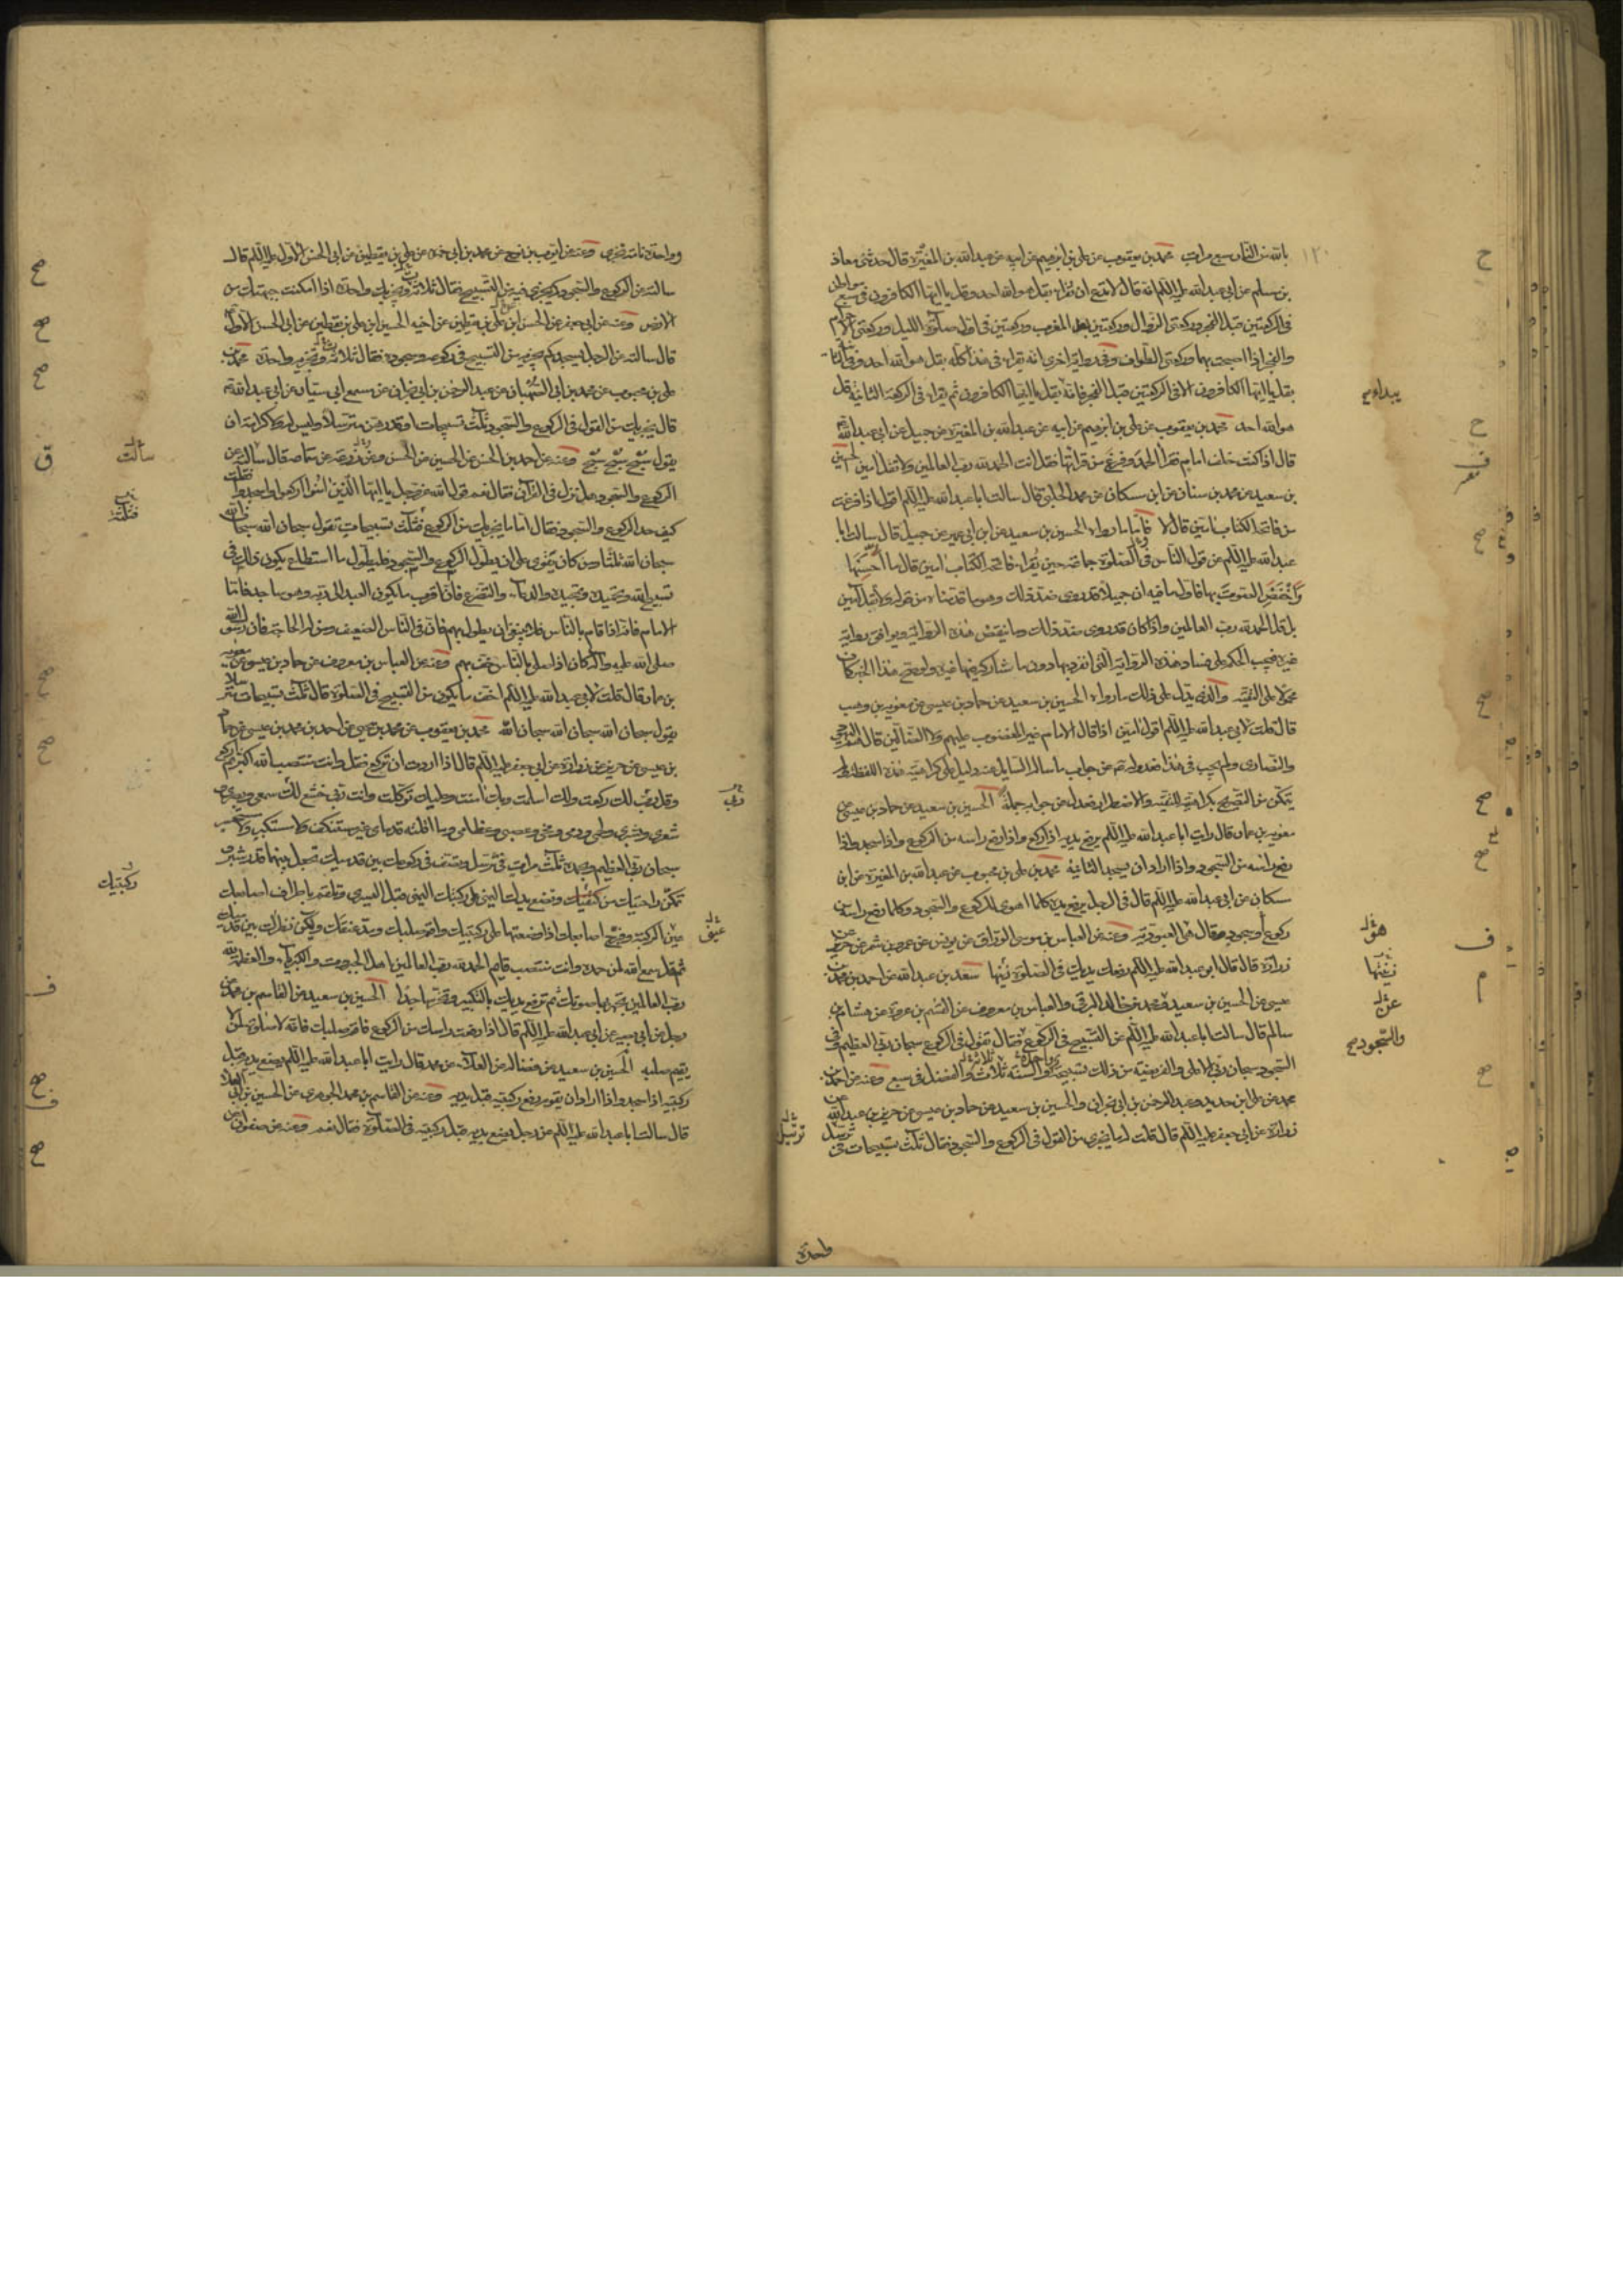 بالله من النار سبع مرات محمد بن يعقوب عن علي بن ابرهيم عن ابيه عن عبد الله بن المغيرة قال حدثنى معاذ
بن مسلم عن ابي عبد الله عليه السلم انه قال لا تدع ان تقراء بقل هو الله احد وقل يا ايها الكافرون في سبع مواطن
في الركعتين قبل الفجر وركعتى الزوال وركعتين بعد المغرب وركعتين في اول صلوة الليل وركعتى الاحرام
والفجر اذا اصبحت بها وركعتى الطواف وفي رواية اخرى انه يقراء في هذا كله بقل هو الله احد وفي الثانية
بقل يا ايها الكافرون الا في الركعتين قبل الفجر فانه يبداء بقل يا ايها الكافرون ثم يقراء في الركعة الثانية قل
هو الله احد محمد بن يعقوب عن علي بن ابرهيم عن ابيه عن عبد الله بن المغيرة عن جميل عن ابي عبد الله
قال اذا كنت خلف امام فقرا الحمد وفرغ من قراتها فقل انت الحمد لله رب العالمين ولا تقل امين الحسين
بن سعيد عن محمد بن سنان عن ابن مسكان عن محمد الحلبي قال سالت ابا عبد الله عليه السلم اقول اذا فرغت
من فاتحة الكتاب امين قال لا فاما ما رواه الحسين بن سعيد عن ابن ابي عمير عن جميل قال سالت ابا
عبد الله عليه السلم عن قول الناس في الصلوة جماعة حين يقراء فاتحة الكتاب امين قال ما احسنها
واخفض الصوت بها فاول ما فيه ان جميلا قد روى ضد ذلك وهو ما قدمناه من قوله ولا تقل امين
بل قل الحمد لله رب العالمين واذا كان قد روى ضد ذلك وما ينقض هذه الرواية ويوافق رواية
غيره فيجب الحكم على فساد هذه الرواية التى انفرد بها دون ما شارك فيها غيره ولو صح هذا الخبر كان
محمولا على التقية والذى يدل على ذلك ما رواه الحسين بن سعيد عن حماد بن عيسى عن معوية بن وهب
قال قلت لابي عبد الله عليه السلم اقول امين اذا قال الامام غير المغضوب عليهم ولا الضالين قال هم اليهود
والنصارى ولم يجب في هذا فعدوله عن جواب ما ساله السايل عنه دليل على كراهية هذه اللفظة ولم
يتمكن من التصريح بكراهية للتقية والاضطرار فعدل عن جوابه جملة الحسين بن سعيد عن حماد بن عيسى عن
معوية بن عمار قال رايت ابا عبد الله عليه السلم يرفع يديه اذا ركع واذا رفع راسه من الركوع واذا سجد واذا
رفع راسه من السجود واذا اراد ان يسجد الثانية محمد بن علي بن محبوب عن عبد الله بن المغيرة عن ابن
مسكان عن ابي عبد الله عليه السلم قال في الرجل يرفع يده كلما اهوى للركوع والسجود وكلما رفع راسه من
ركوع او سجود وقال هي العبودية وعنه عن العباس بن موسى الوراق عن يونس عن عمرو بن شمر عن حريز عن
زرارة قال قال ابو عبد الله عليه السلم رفعك يديك في الصلوة زينها سعد بن عبد الله عن احمد بن محمد بن
عيسى عن الحسين بن سعيد ومحمد بن خالد البرقى والعباس بن معروف عن القسم بن عروة عن هشام بن
سالم قال سالت ابا عبد الله عليه السلم عن التسبيح في الركوع فقال تقول في الركوع سبحان ربى العظيم وفي
السجود سبحان ربى الاعلى والفريضة من ذلك تسبيحة والسنة ثلاث والفضل في سبع وعنه عن احمد بن
محمد عن علي بن حديد وعبد الرحمن بن ابى نجران والحسين بن سعيد عن حماد بن عيسى عن حريز بن عبد الله عن
زرارة عن ابي جعفر عليه السلم قال قلت له ما يجزى من القول في الركوع والسجود فقال ثلث تسبيحات في ترسل
يبداء
هو
زينها
عن
والسجود
واحدة
وواحدة تامة تجزى وعنه عن ايوب بن نوح عن محمد بن ابي حمزه عن علي بن يقطين عن ابي الحسن الاول عليه السلم قال
سالته عن الركوع والسجود كم يجزى فيه من التسبيح فقال ثلاثة وتجزيك واحدة اذا امكنت جبهتك من
الارض وعنه عن ابي جعفر عن الحسن بن علي بن يقطين عن اخيه الحسين بن علي بن يقطين عن ابي الحسن الاول
قال سالته عن الرجل يسجد كم يجزيه من التسبيح في ركوعه وسجوده فقال ثلاثة وتجزيه واحدة محمد بن
علي بن محبوب عن محمد بن ابي الصهبان عن عبد الرحمن بن ابي نجران عن مسمع ابي سيار عن ابي عبد الله
قال يجزيك من القول في الركوع والسجود ثلث تسبيحات او قدرهن مترسلا وليس له ولا كرامة ان
يقول سبح سبح سبح وعنه عن احمد بن الحسن عن الحسين عن الحسن وعن زرعة عن سماعة قال سالته عن
الركوع والسجود هل نزل في القرآن فقال نعم قول الله عز وجل يا ايها الذين امنوا اركعوا واسجدوا فقلت
كيف حد الركوع والسجود فقال اما ما يجزيك من الركوع فثلث تسبيحات تقول سبحان الله سبحان الله
سبحان الله ثلثا ومن كان يقوى على ان يطول الركوع والسجود فليطول ما استطاع يكون ذلك في
تسبيح الله وتحميده وتمجيده والدعاء والتضرع فان اقرب ما يكون العبد الى ربه وهو ساجد فاما
الامام فانه اذا قام بالناس فلا ينبغى ان يطول بهم فان في الناس الضعيف ومن له الحاجة فان رسول الله
صلى الله عليه وآله كان اذا صلى بالناس خف بهم وعنه عن العباس بن معروف عن حماد بن عيسى عن معوية
بن عمار قال قلت لابي عبد الله عليه السلم اخف ما يكون من التسبيح في الصلوة قال ثلث تسبيحات مترسلا
يقول سبحان الله سبحان الله سبحان الله محمد بن يعقوب عن محمد بن يحيى عن احمد بن محمد بن عيسى عن حماد
بن عيسى عن حريز عن زرارة عن ابي جعفر عليه السلم قال اذا اردت ان تركع فقل وانت منتصب الله اكبر ثم اركع
وقل رب لك ركعت ولك اسلمت وبك امنت وعليك توكلت وانت ربى خشع لك سمعى وبصرى
شعرى وبشرى ولحمى ودمى ومخى وعصبى وعظامى وما اقلته قدماى غير مستنكف ولا مستكبر ولا مستحسر
سبحان ربى العظيم وبحمده ثلث مرات في ترسل وتصف في ركوعك بين قدميك تجعل بينهما قدر شبر
وتمكن راحتيك من ركبتيك وتضع يدك اليمنى على ركبتك اليمنى قبل اليسرى وتلقم باطراف اصابعك
عين الركبة وفرج اصابعك اذا وضعتها على ركبتيك واقم صلبك ومد عنقك وليكن نظرك بين قدميك
ثم قل سمع الله لمن حمده وانت منتصب قايم الحمد لله رب العالمين اهل الجبروت والكبرياء والعظمة لله
رب العالمين تجهر بها صوتك ثم ترفع يديك بالتكبير وتخر ساجدا الحسين بن سعيد عن القاسم بن محمد عن
رجل عن ابي بصير عن ابي عبد الله عليه السلم قال اذا رفعت راسك من الركوع فاقم صلبك فانه لا صلوة لمن لا
يقيم صلبه الحسين بن سعيد عن فضالة عن العلاء عن محمد قال رايت ابا عبد الله عليه السلم يضع يديه قبل
ركبتيه اذا سجد واذا اراد ان يقوم رفع ركبتيه قبل يديه وعنه عن القاسم بن محمد الجوهرى عن الحسين بن ابي العلاء
قال سالت ابا عبد الله عليه السلم عن الرجل يضع يديه قبل ركبتيه في الصلوة فقال نعم وعنه عن صفوان عن
سالت
ركبتيك